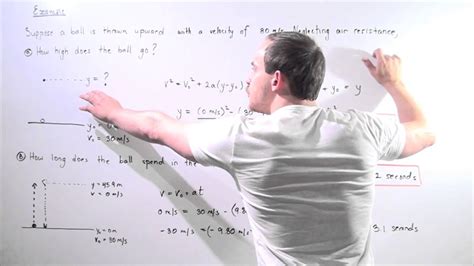 Example
Suppose a ball is thrown upward with a velocity of 30 m/s. Neglecting air resistance,
Ⓐ How high does the ball go?
y = ?
v² = v₀² + 2a(y-y₀)
+ y₀ = y
y = (0 m/s)² - (30
v₀ = 30 m/s
Ⓑ How long does the ball spend in the
y = 45.9 m
v = 0 m/s
v = v₀ + at
2 seconds
0 m/s = 30 m/s - (9.80
y₀ = 0 m
v₀ = 30 m/s
-30 m/s = (-9.80 m/s
3.1 seconds